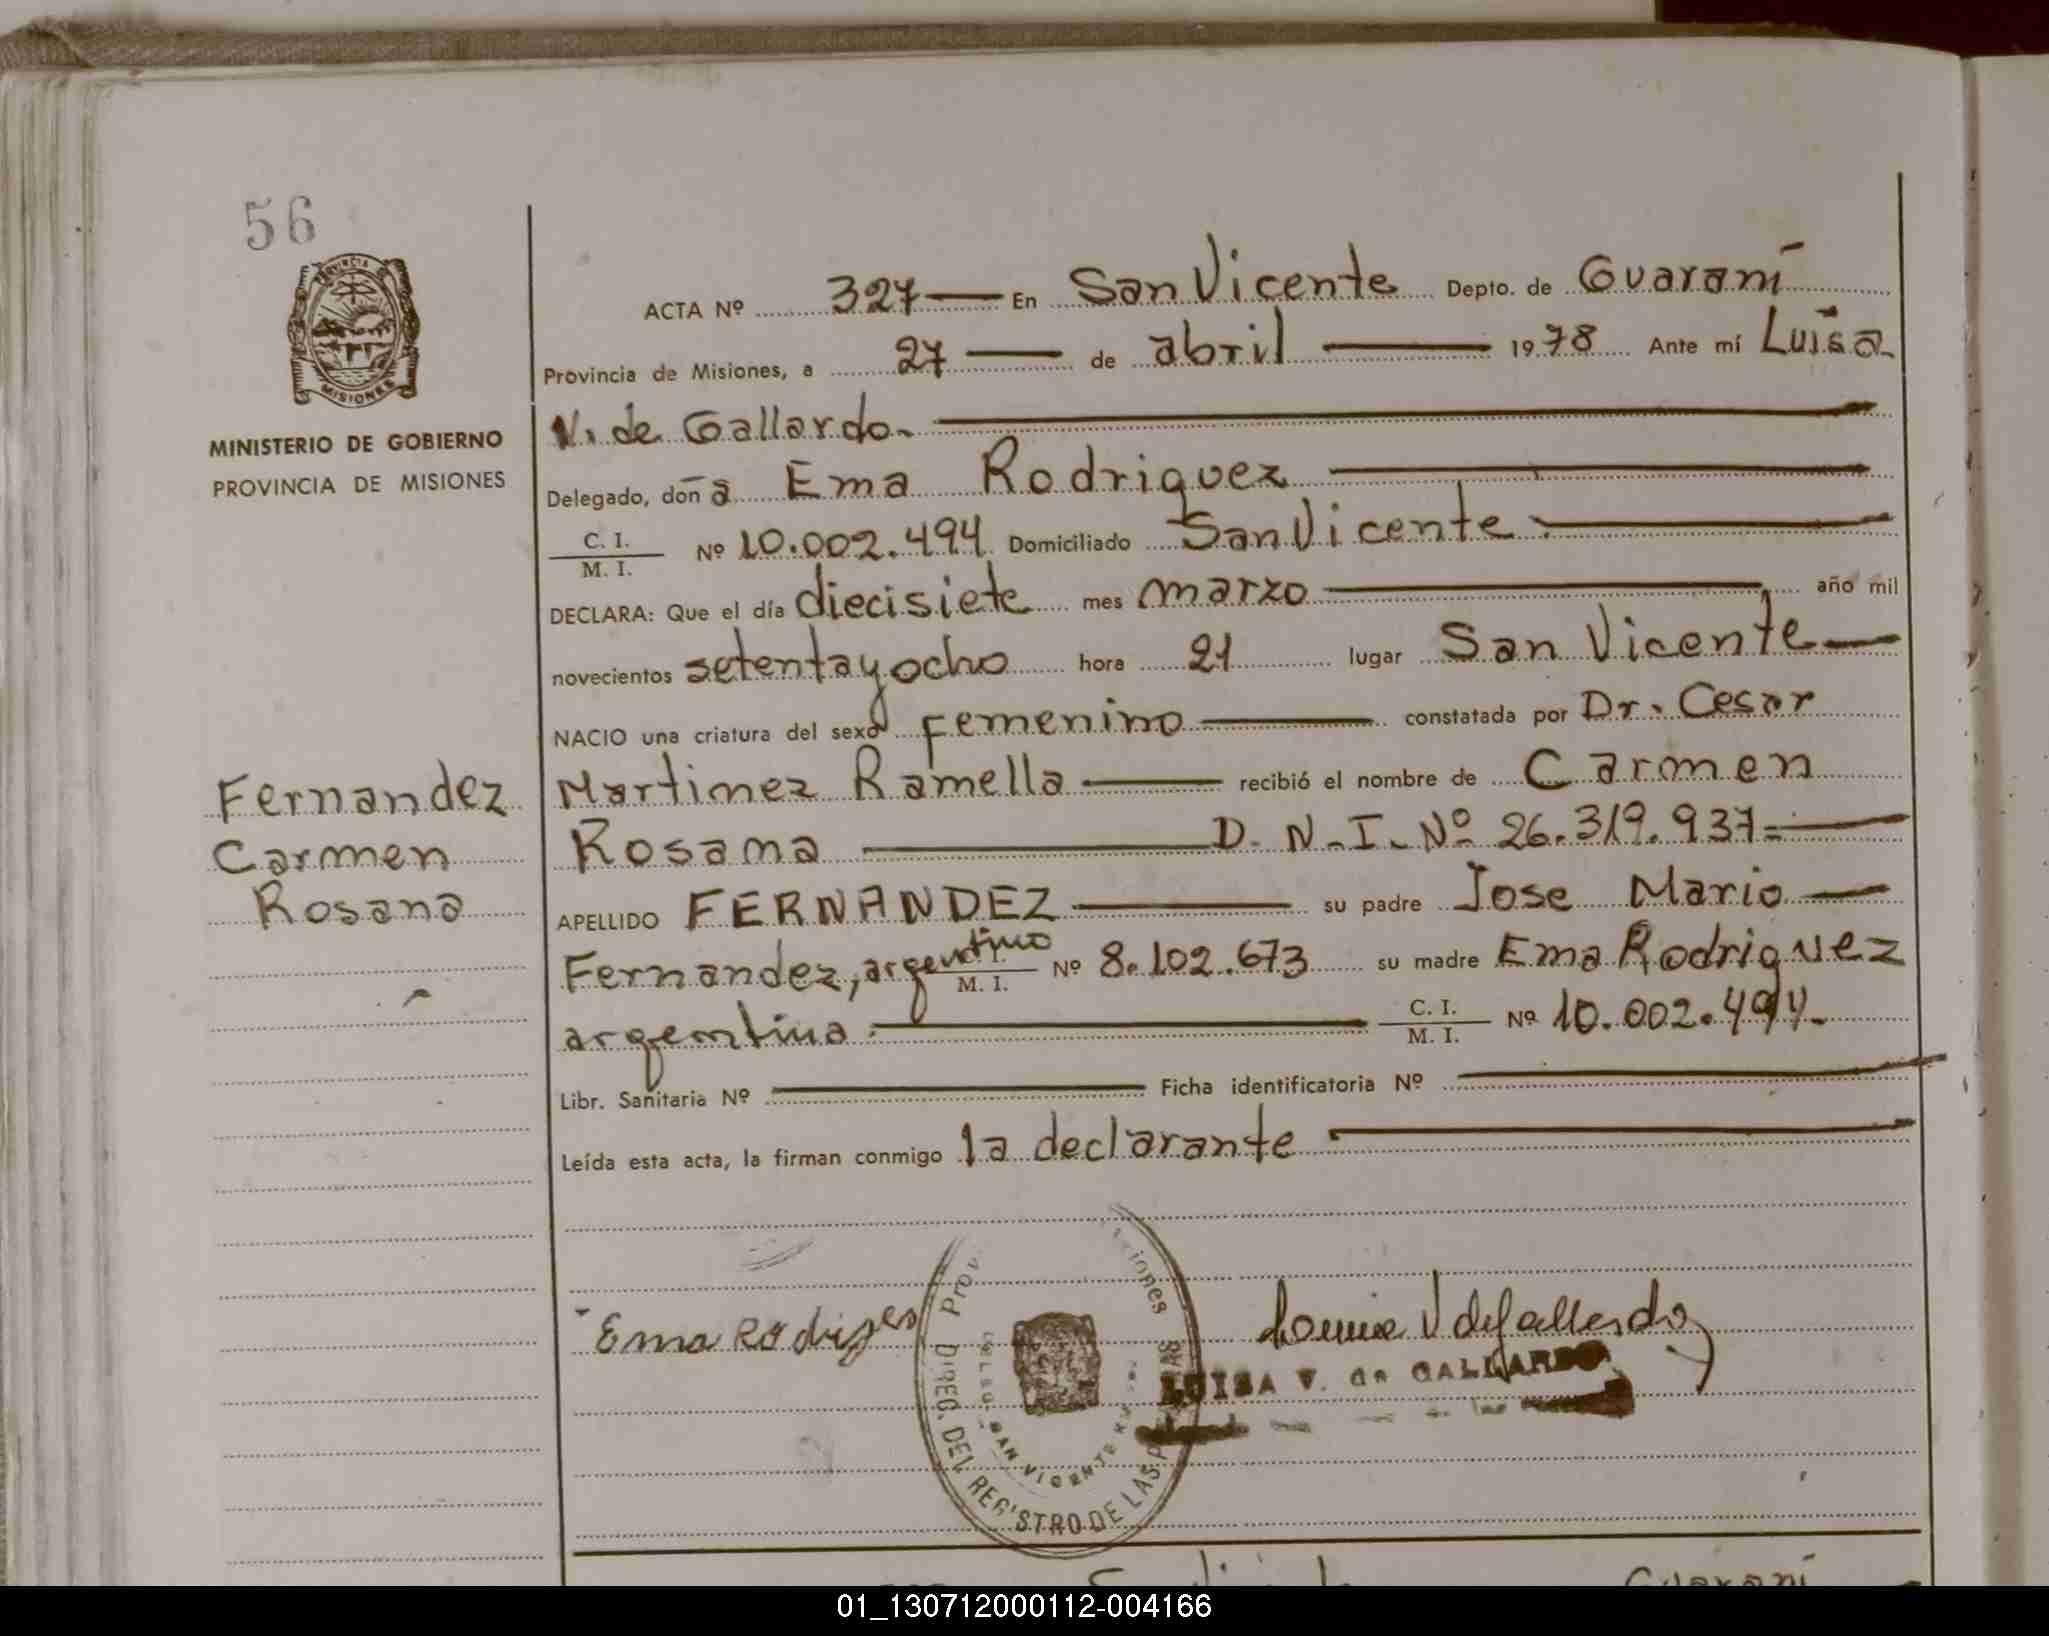 56
PROVINCIA DE
MISIONES
MINISTERIO DE GOBIERNO
PROVINCIA DE MISIONES
Fernandez
Carmen
Rosana
ACTA Nº 327 En San Vicente Depto. de Guaraní
Provincia de Misiones, a 27 de abril 1978 Ante mí Luisa
V. de Gallardo.
Delegado, doña Ema Rodriguez
C. I.
M. I. Nº 10.002.494 Domiciliado San Vicente.
DECLARA: Que el día diecisiete mes marzo año mil
novecientos setenta y ocho hora 21 lugar San Vicente
NACIO una criatura del sexo femenino constatada por Dr. Cesar
Martinez Ramella recibió el nombre de Carmen
Rosana D. N. I. Nº 26.319.937=
APELLIDO FERNANDEZ su padre Jose Mario
Fernandez, argentino M. I. Nº 8.102.673 su madre Ema Rodriguez
argentina. C. I.
M. I. Nº 10.002.494.
Libr. Sanitaria Nº Ficha identificatoria Nº
Leída esta acta, la firman conmigo la declarante
Ema Rodriguez
Luisa V de Gallardo
LUISA V. de GALLARDO
DIREC. DEL REGISTRO DE LAS
SAN VICENTE
San Vicente Guaraní
01_130712000112-004166